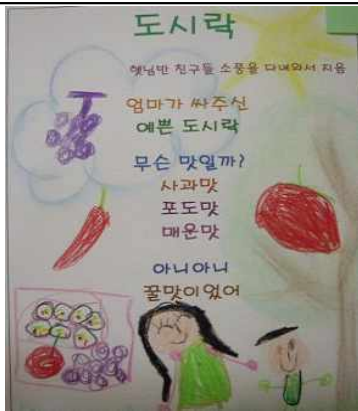 도시락
햇님반 친구들 소풍을 다녀와서 지음
엄마가 싸주신
예쁜 도시락
무슨 맛일까?
사과맛
포도맛
매운맛
아니아니
꿀맛이었어